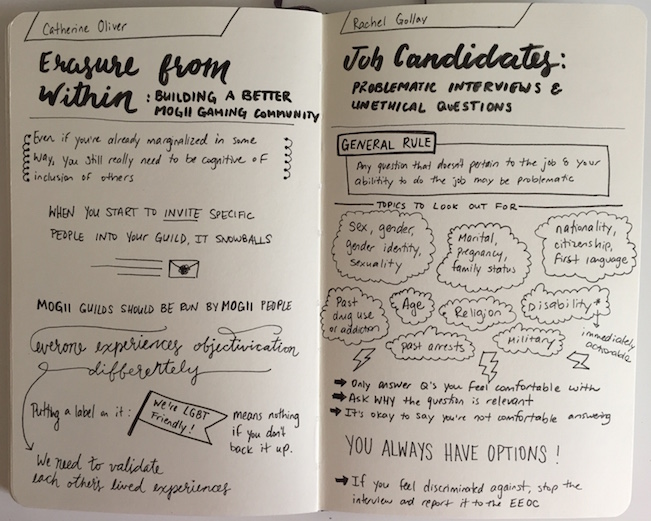 Catherine Oliver
Erasure from
Within : BUILDING A BETTER
MOGII GAMING COMMUNITY
Even if you're already marginalized in some
way, you still really need to be cognitive of
inclusion of others
WHEN YOU START TO INVITE SPECIFIC
PEOPLE INTO YOUR GUILD, IT SNOWBALLS
MOGII GUILDS SHOULD BE RUN BY MOGII PEOPLE
everone experiences objectivication
differently
Putting a label on it :
We're LGBT
Friendly!
means nothing
if you don't
back it up.
We need to validate
each other's lived experiences
Rachel Gollay
Job Candidates:
PROBLEMATIC INTERVIEWS &
UNETHICAL QUESTIONS
GENERAL RULE
Any question that doesn't pertain to the job & your
abilitity to do the job may be problematic
TOPICS TO LOOK OUT FOR
Sex, gender,
gender identity,
sexuality
Marital,
pregnancy,
family status
nationality,
citizenship,
first language
Past
drug use
or addiction
Age
Religion
Disability*
immediately
actionable
past arrests
Military
→ Only answer Q's you feel comfortable with
→ Ask WHY the question is relevant
→ It's okay to say you're not comfortable answering
YOU ALWAYS HAVE OPTIONS!
→ If you feel discriminated against, stop the
interview and report it to the EEOC